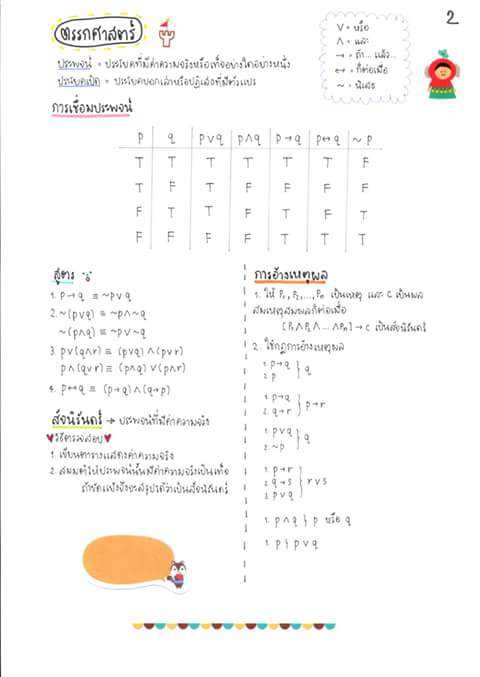 2
ตรรกศาสตร์
V = หรือ
∧ = และ
→ = ถ้า... แล้ว...
↔ = ก็ต่อเมื่อ
~ = นิเสธ
ประพจน์ = ประโยคที่มีค่าความจริงหรือเท็จอย่างใดอย่างหนึ่ง
ประโยคเปิด = ประโยคบอกเล่าหรือปฏิเสธที่มีตัวแปร
การเชื่อมประพจน์
p q p∨q p∧q p→q p↔q ~p
T T T T T T F
T F T F F F F
F T T F T F T
F F F F T T T
สูตร
1. p→q ≡ ~p∨q
2. ~(p∨q) ≡ ~p∧~q
~(p∧q) ≡ ~p∨~q
3. p∨(q∧r) ≡ (p∨q)∧(p∨r)
p∧(q∨r) ≡ (p∧q)∨(p∧r)
4. p↔q ≡ (p→q)∧(q→p)
สัจนิรันดร์ → ประพจน์ที่มีค่าความจริง
วิธีตรวจสอบ
1. เขียนตารางแสดงค่าความจริง
2. สมมติให้ประพจน์นั้นมีค่าความจริงเป็นเท็จ
ถ้าขัดแย้งจึงจะสรุปได้ว่าเป็นสัจนิรันดร์
การอ้างเหตุผล
1. ให้ P₁, P₂,..., Pₙ เป็นเหตุ และ C เป็นผล
สมเหตุสมผลก็ต่อเมื่อ
[P₁∧P₂∧... ∧Pₙ] → C เป็นสัจนิรันดร์
2. ใช้กฎการอ้างเหตุผล
1. p→q
2. p } q
1. p→q
2. q→r } p→r
1. p∨q
2. ~p } q
1. p→r
2. q→s } r∨s
3. p∨q
1. p∧q } p หรือ q
1. p } p∨q